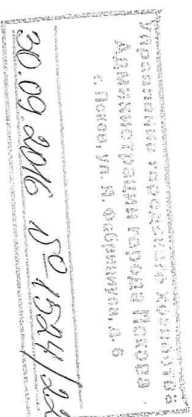 Управление городского хозяйства
Администрации города Пскова
г. Псков, ул. Я. Фабрициуса, д. 6
30.09.2016 № 1524/22